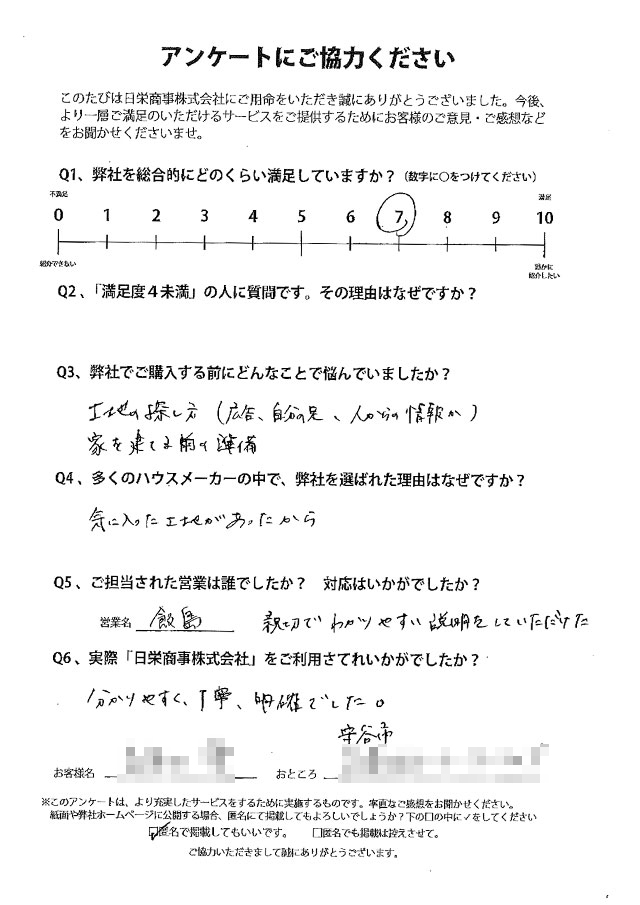 アンケートにご協力ください
このたびは日栄商事株式会社にご用命をいただき誠にありがとうございました。今後、
より一層ご満足のいただけるサービスをご提供するためにお客様のご意見・ご感想など
をお聞かせくださいませ。
Q1、弊社を総合的にどのくらい満足していますか？（数字に○をつけてください）
不満足 満足
0 1 2 3 4 5 6 7 8 9 10
紹介できない 誰かに
紹介したい
Q2、「満足度４未満」の人に質問です。その理由はなぜですか？
Q3、弊社でご購入する前にどんなことで悩んでいましたか？
土地の探し方（広告、自分の足、人からの情報か）
家を建てる前の準備
Q4、多くのハウスメーカーの中で、弊社を選ばれた理由はなぜですか？
気に入った土地があったから
Q5、ご担当された営業は誰でしたか？ 対応はいかがでしたか？
営業名 飯島 親切でわかりやすい説明をしていただけた
Q6、実際「日栄商事株式会社」をご利用さてれいかがでしたか？
分かりやすく、丁寧、明確でした。
守谷市
お客様名 おところ
※このアンケートは、より充実したサービスをするために実施するものです。率直なご感想をお聞かせください。
紙面や弊社ホームページに公開する場合、匿名にて掲載してもよろしいでしょうか？下の□の中に✓をしてください
☑匿名で掲載してもいいです。 □匿名でも掲載は控えさせて。
ご協力いただきまして誠にありがとうございます。